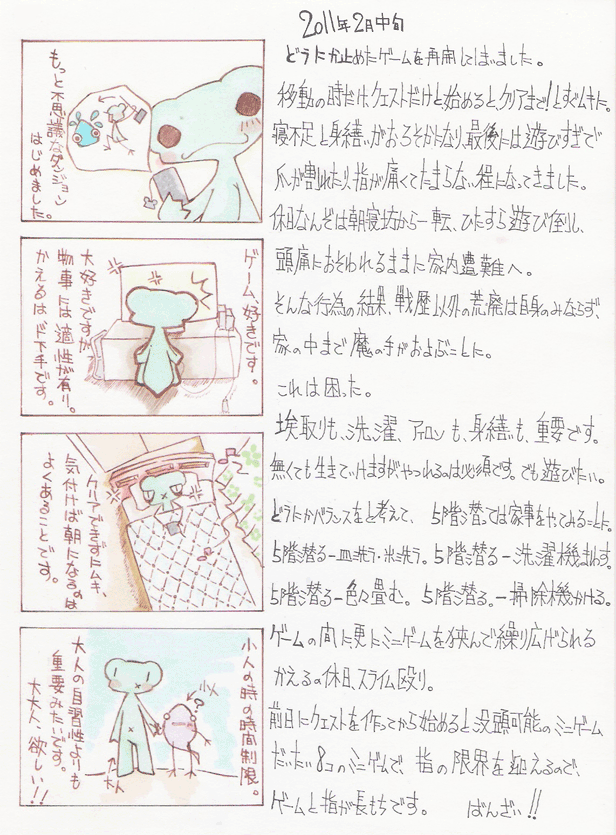 2011年2月中旬
どうにか止めたゲームを再開してしまいました。
移動の時だけ、クエストだけと始めると、クリアまで!とすズムキに。
寝不足と身繕いがおろそかになり、最後には遊びすぎで
爪が割れたり、指が痛くてたまらない程になってきました。
休日なんぞは朝寝坊から一転、ひたすら遊び倒し、
頭痛におそわれるままに家内遭難へ。
そんな行為の結果、戦歴以外の荒廃は自身のみならず、
家の中まで魔の手がおよぶことに。
これは困った。
埃取りも、洗濯、アイロンも、身繕いも、重要です。
無くても生きていけますが、やつれるのは必須です。でも遊びたい。
どうにかバランスをと考えて、5階潜っては家事をやってみることに。
5階潜る―皿洗う・米洗う。5階潜る―洗濯機まわす。
5階潜る―色々畳む。5階潜る。―掃除機かける。
ゲームの間に更にミニゲームを挟んで繰り広げられる
かえるの休日、スライム殴り。
前日にクエストを作ってから始めると没頭可能のミニゲーム
だいたい8コのミニゲームで、指の限界を迎えるので、
ゲームと指が長もちです。 ばんざい!!
もっと不思議なダンジョン
はじめました。
ゲーム、好きです。
大好きですが、
物事には適性が有り。
かえるはド下手です。
クリアできずにムキ、
気付けば朝になるのは
よくあることです。
小人の時の時間制限。
大人の自習性よりも
重要みたいです。
大大人、欲しい!!
小人
?
大人